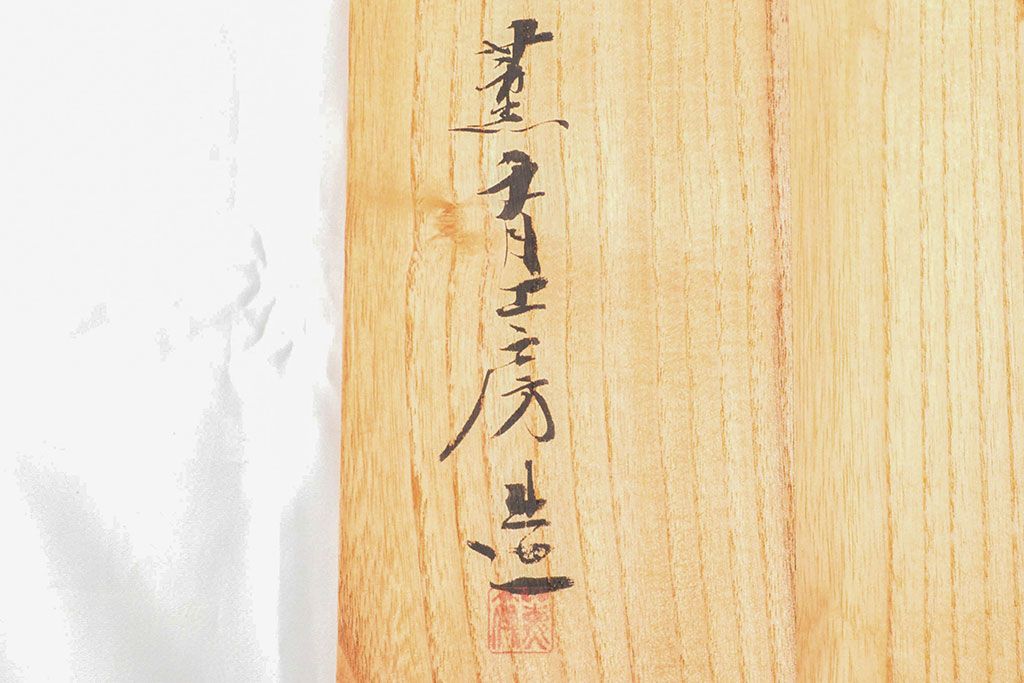 薫青工房造